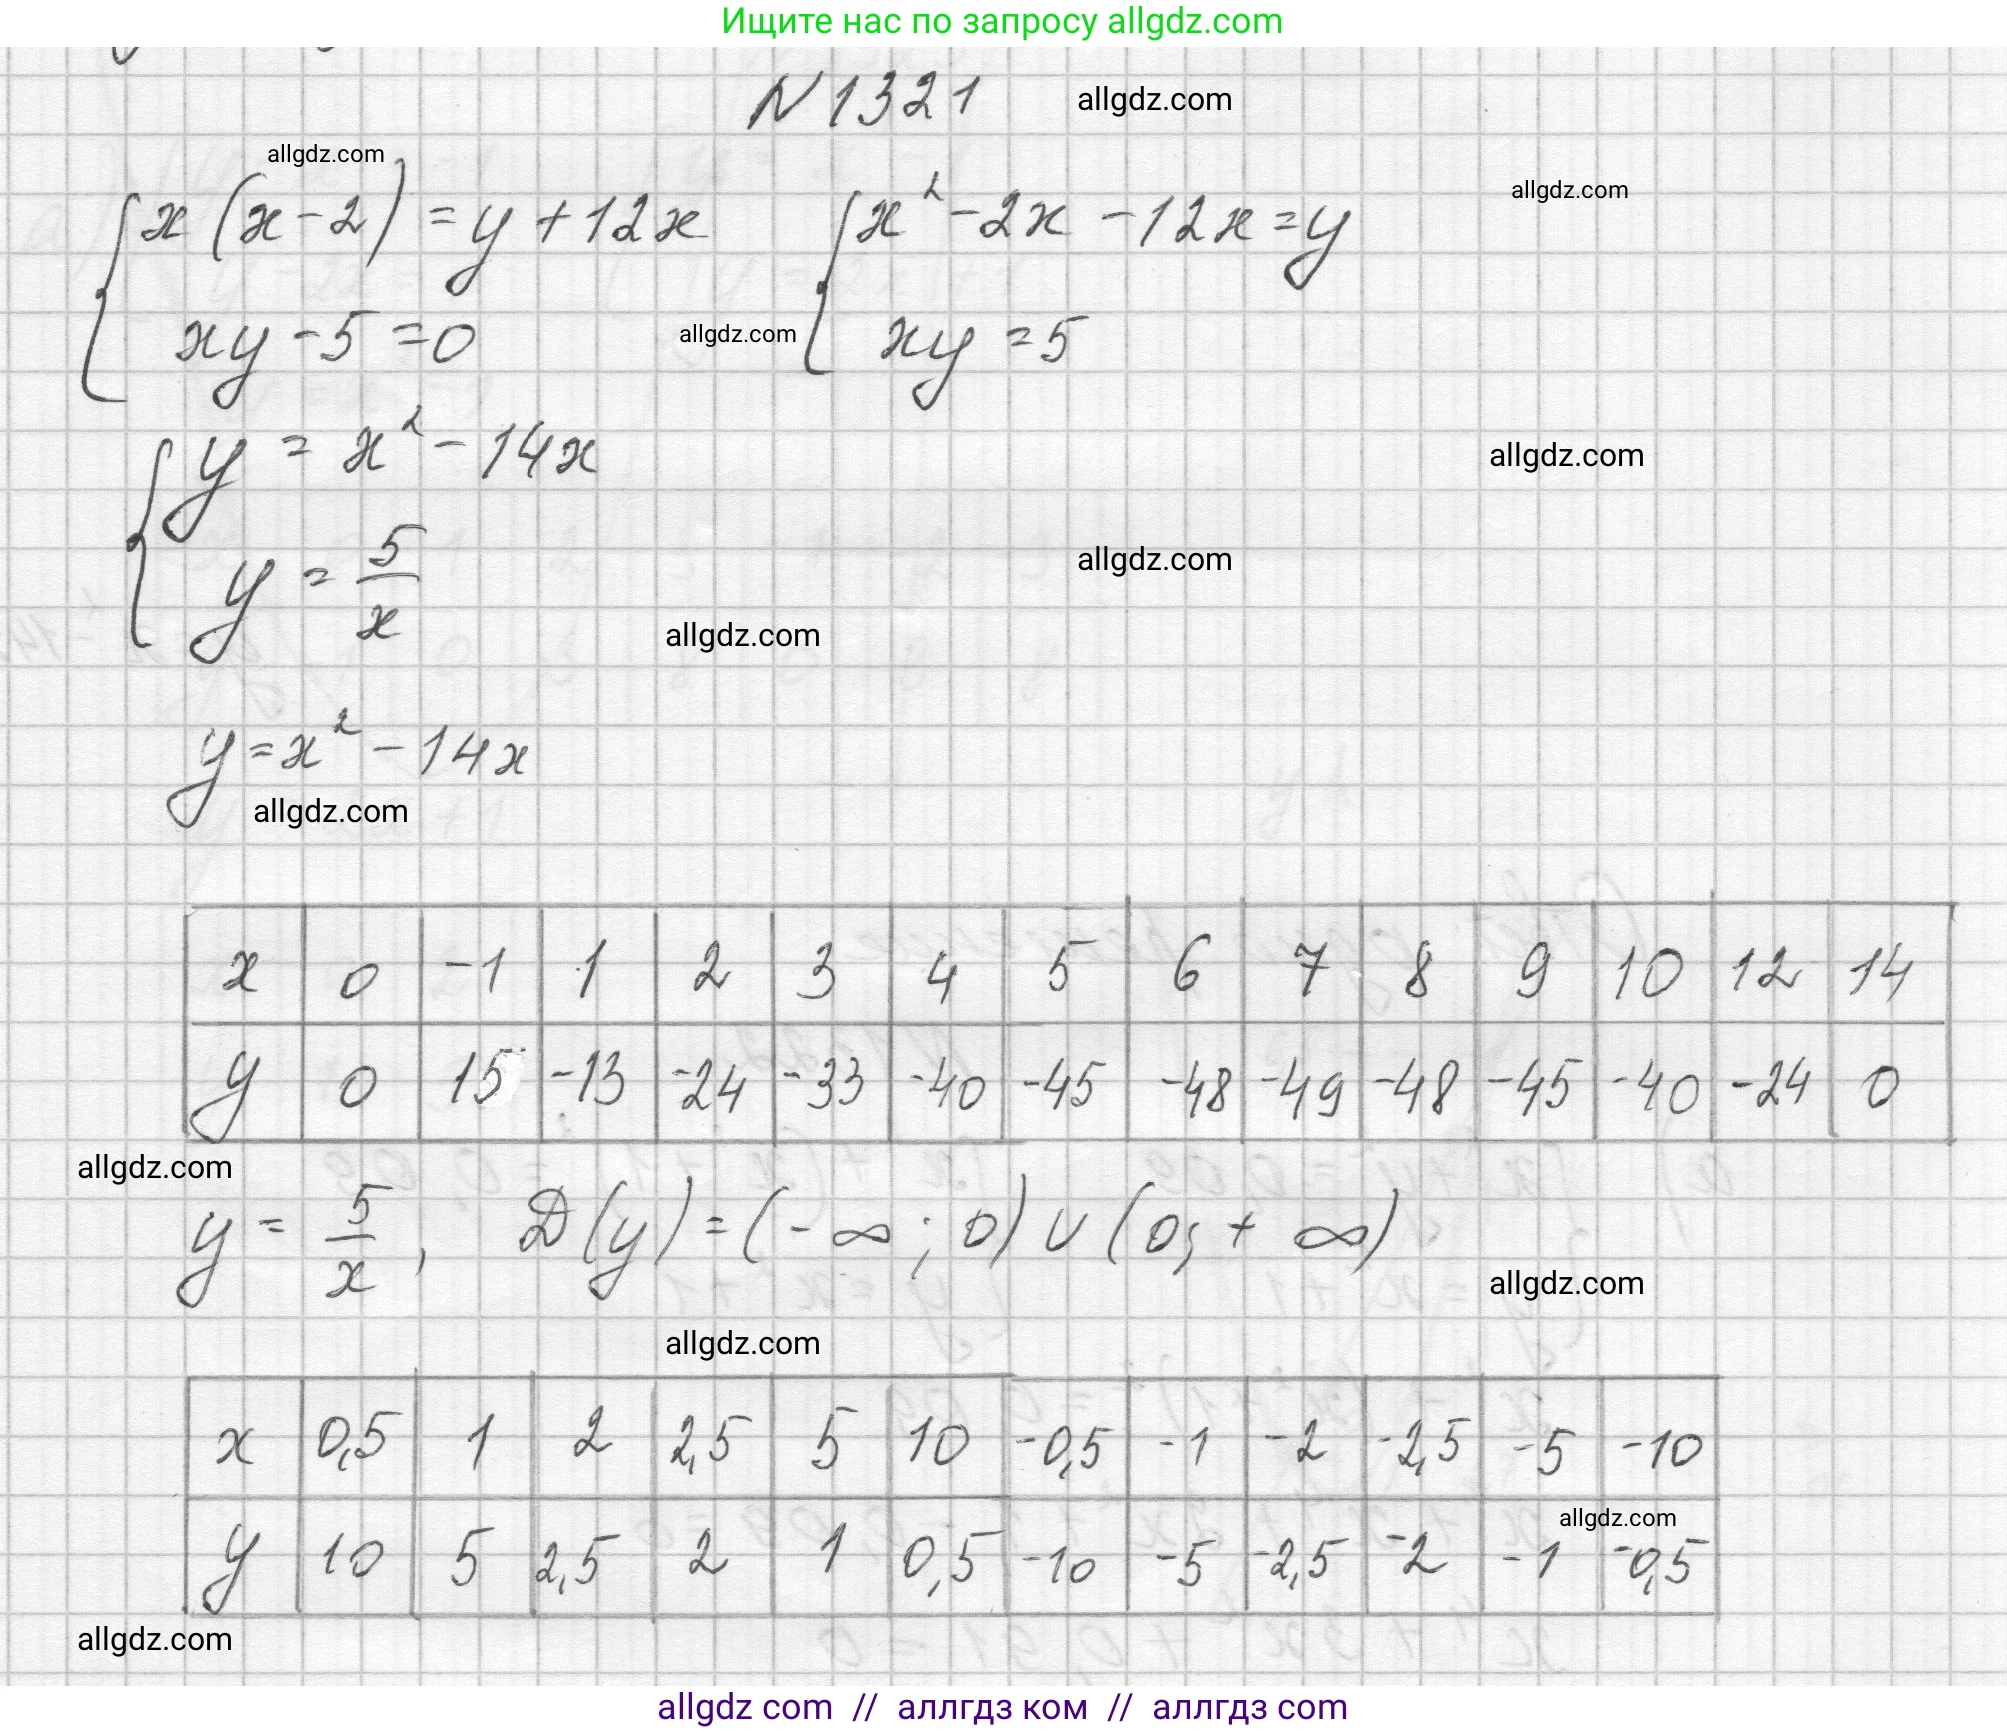 Ищите нас по запросу allgdz.com
N 1321 allgdz.com
allgdz.com
x(x-2) = y+12x x²-2x-12x=y allgdz.com
xy-5=0 allgdz.com xy=5
y = x²-14x allgdz.com
y = 5/x allgdz.com
allgdz.com
y=x²-14x
allgdz.com
x 0 -1 1 2 3 4 5 6 7 8 9 10 12 14
y 0 15 -13 -24 -33 -40 -45 -48 -49 -48 -45 -40 -24 0
allgdz.com
y = 5/x, D(y)=(-∞;0)∪(0;+∞)
allgdz.com
allgdz.com
x 0,5 1 2 2,5 5 10 -0,5 -1 -2 -2,5 -5 -10
allgdz.com
y 10 5 2,5 2 1 0,5 -10 -5 -2,5 -2 -1 -0,5
allgdz.com
allgdz com // аллгдз ком // аллгдз com